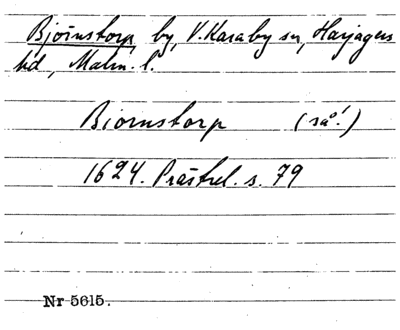 Björnstorp by, V. Karaby sn, Harjagers
hd, Malm. l.
Biornstorp (så!)
1624. Prästrel. s. 79
Nr 5615.